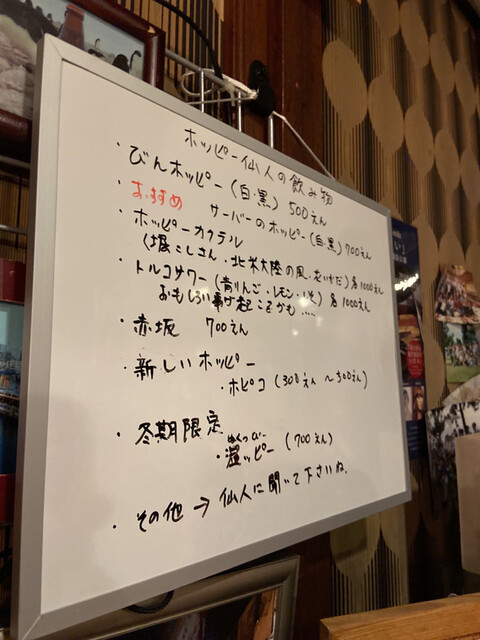 ホッピー仙人の飲み物
・びんホッピー(白・黒) 500えん
おすすめ サーバーのホッピー(白・黒) 700えん
・ホッピーカクテル
(堀こしさん・北米大陸の風・花いかだ) 各1000えん
・トルコサワー(青りんご・レモン・) 各1000えん
おもしろい事が起こるかも.....
・赤坂 700えん
・新しいホッピー
・ホピコ(300えん〜500えん)
・冬期限定
ぬくっぴー
・温ッピー(700えん)
・その他→仙人に聞いて下さいね。